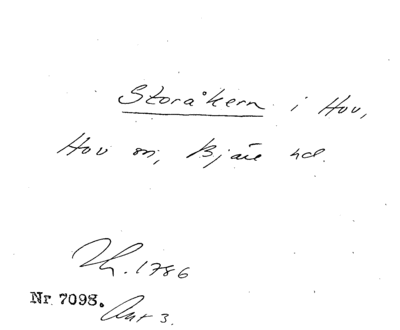 Storåkern i Hov,
Hov sn, Bjäre hd.
1786
Nr 7098.
Akt 3.